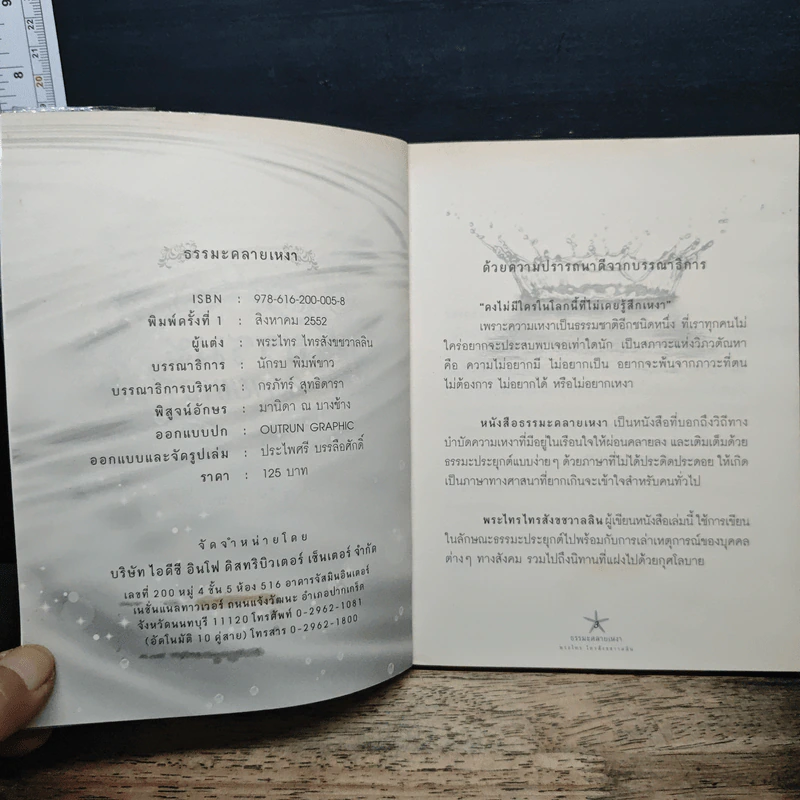 ธรรมะคลายเหงา
ISBN : 978-616-200-005-8
พิมพ์ครั้งที่ 1 : สิงหาคม 2552
ผู้แต่ง : พระไทร ไทรสังขชวาลลิน
บรรณาธิการ : นักรบ พิมพ์ขาว
บรรณาธิการบริหาร : กรภัทร์ สุทธิดารา
พิสูจน์อักษร : มานิดา ณ บางช้าง
ออกแบบปก : OUTRUN GRAPHIC
ออกแบบและจัดรูปเล่ม : ประไพศรี บรรลือศักดิ์
ราคา : 125 บาท
จัดจำหน่ายโดย
บริษัท ไอดีซี อินโฟ ดิสทริบิวเตอร์ เซ็นเตอร์ จำกัด
เลขที่ 200 หมู่ 4 ชั้น 5 ห้อง 516 อาคารจัสมินอินเตอร์
เนชั่นแนลทาวเวอร์ ถนนแจ้งวัฒนะ อำเภอปากเกร็ด
จังหวัดนนทบุรี 11120 โทรศัพท์ 0-2962-1081
(อัตโนมัติ 10 คู่สาย) โทรสาร 0-2962-1800
ด้วยความปรารถนาดีจากบรรณาธิการ
“คงไม่มีใครในโลกนี้ที่ไม่เคยรู้สึกเหงา”
เพราะความเหงาเป็นธรรมชาติอีกชนิดหนึ่ง ที่เราทุกคนไม่
ใคร่อยากจะประสบพบเจอเท่าใดนัก เป็นสภาวะแห่งวิภวตัณหา
คือ ความไม่อยากมี ไม่อยากเป็น อยากจะพ้นจากภาวะที่ตน
ไม่ต้องการ ไม่อยากได้ หรือไม่อยากเหงา
หนังสือธรรมะคลายเหงา เป็นหนังสือที่บอกถึงวิถีทาง
บำบัดความเหงาที่มีอยู่ในเรือนใจให้ผ่อนคลายลง และเติมเต็มด้วย
ธรรมะประยุกต์แบบง่ายๆ ด้วยภาษาที่ไม่ได้ประดิดประดอย ให้เกิด
เป็นภาษาทางศาสนาที่ยากเกินจะเข้าใจสำหรับคนทั่วไป
พระไทรไทรสังขชวาลลิน ผู้เขียนหนังสือเล่มนี้ ใช้การเขียน
ในลักษณะธรรมะประยุกต์ไปพร้อมกับการเล่าเหตุการณ์ของบุคคล
ต่างๆ ทางสังคม รวมไปถึงนิทานที่แฝงไปด้วยกุศโลบาย
ธรรมะคลายเหงา
พระไทร ไทรสังขชวาลลิน
9
8
22
21
20